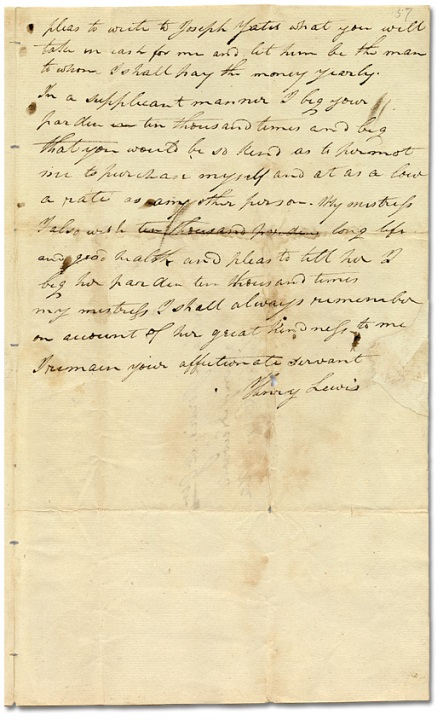 57
pleas to write to Joseph Yates what you will
take in cash for me and let him be the man
to whom I shall pay the money yearly.
In a supplicant manner I beg your
pardon ten thousand times and beg
that you would be so kind as to permot
me to purchase myself and at as a low
a rate as any other person. My mistress
I also wish ten thousand pardons long life
and good health and pleas to tell her I
beg her pardon ten thousand times
my mistress I shall always remember
on account of her great kindness to me
I remain your affectionate servant
Henry Lewis